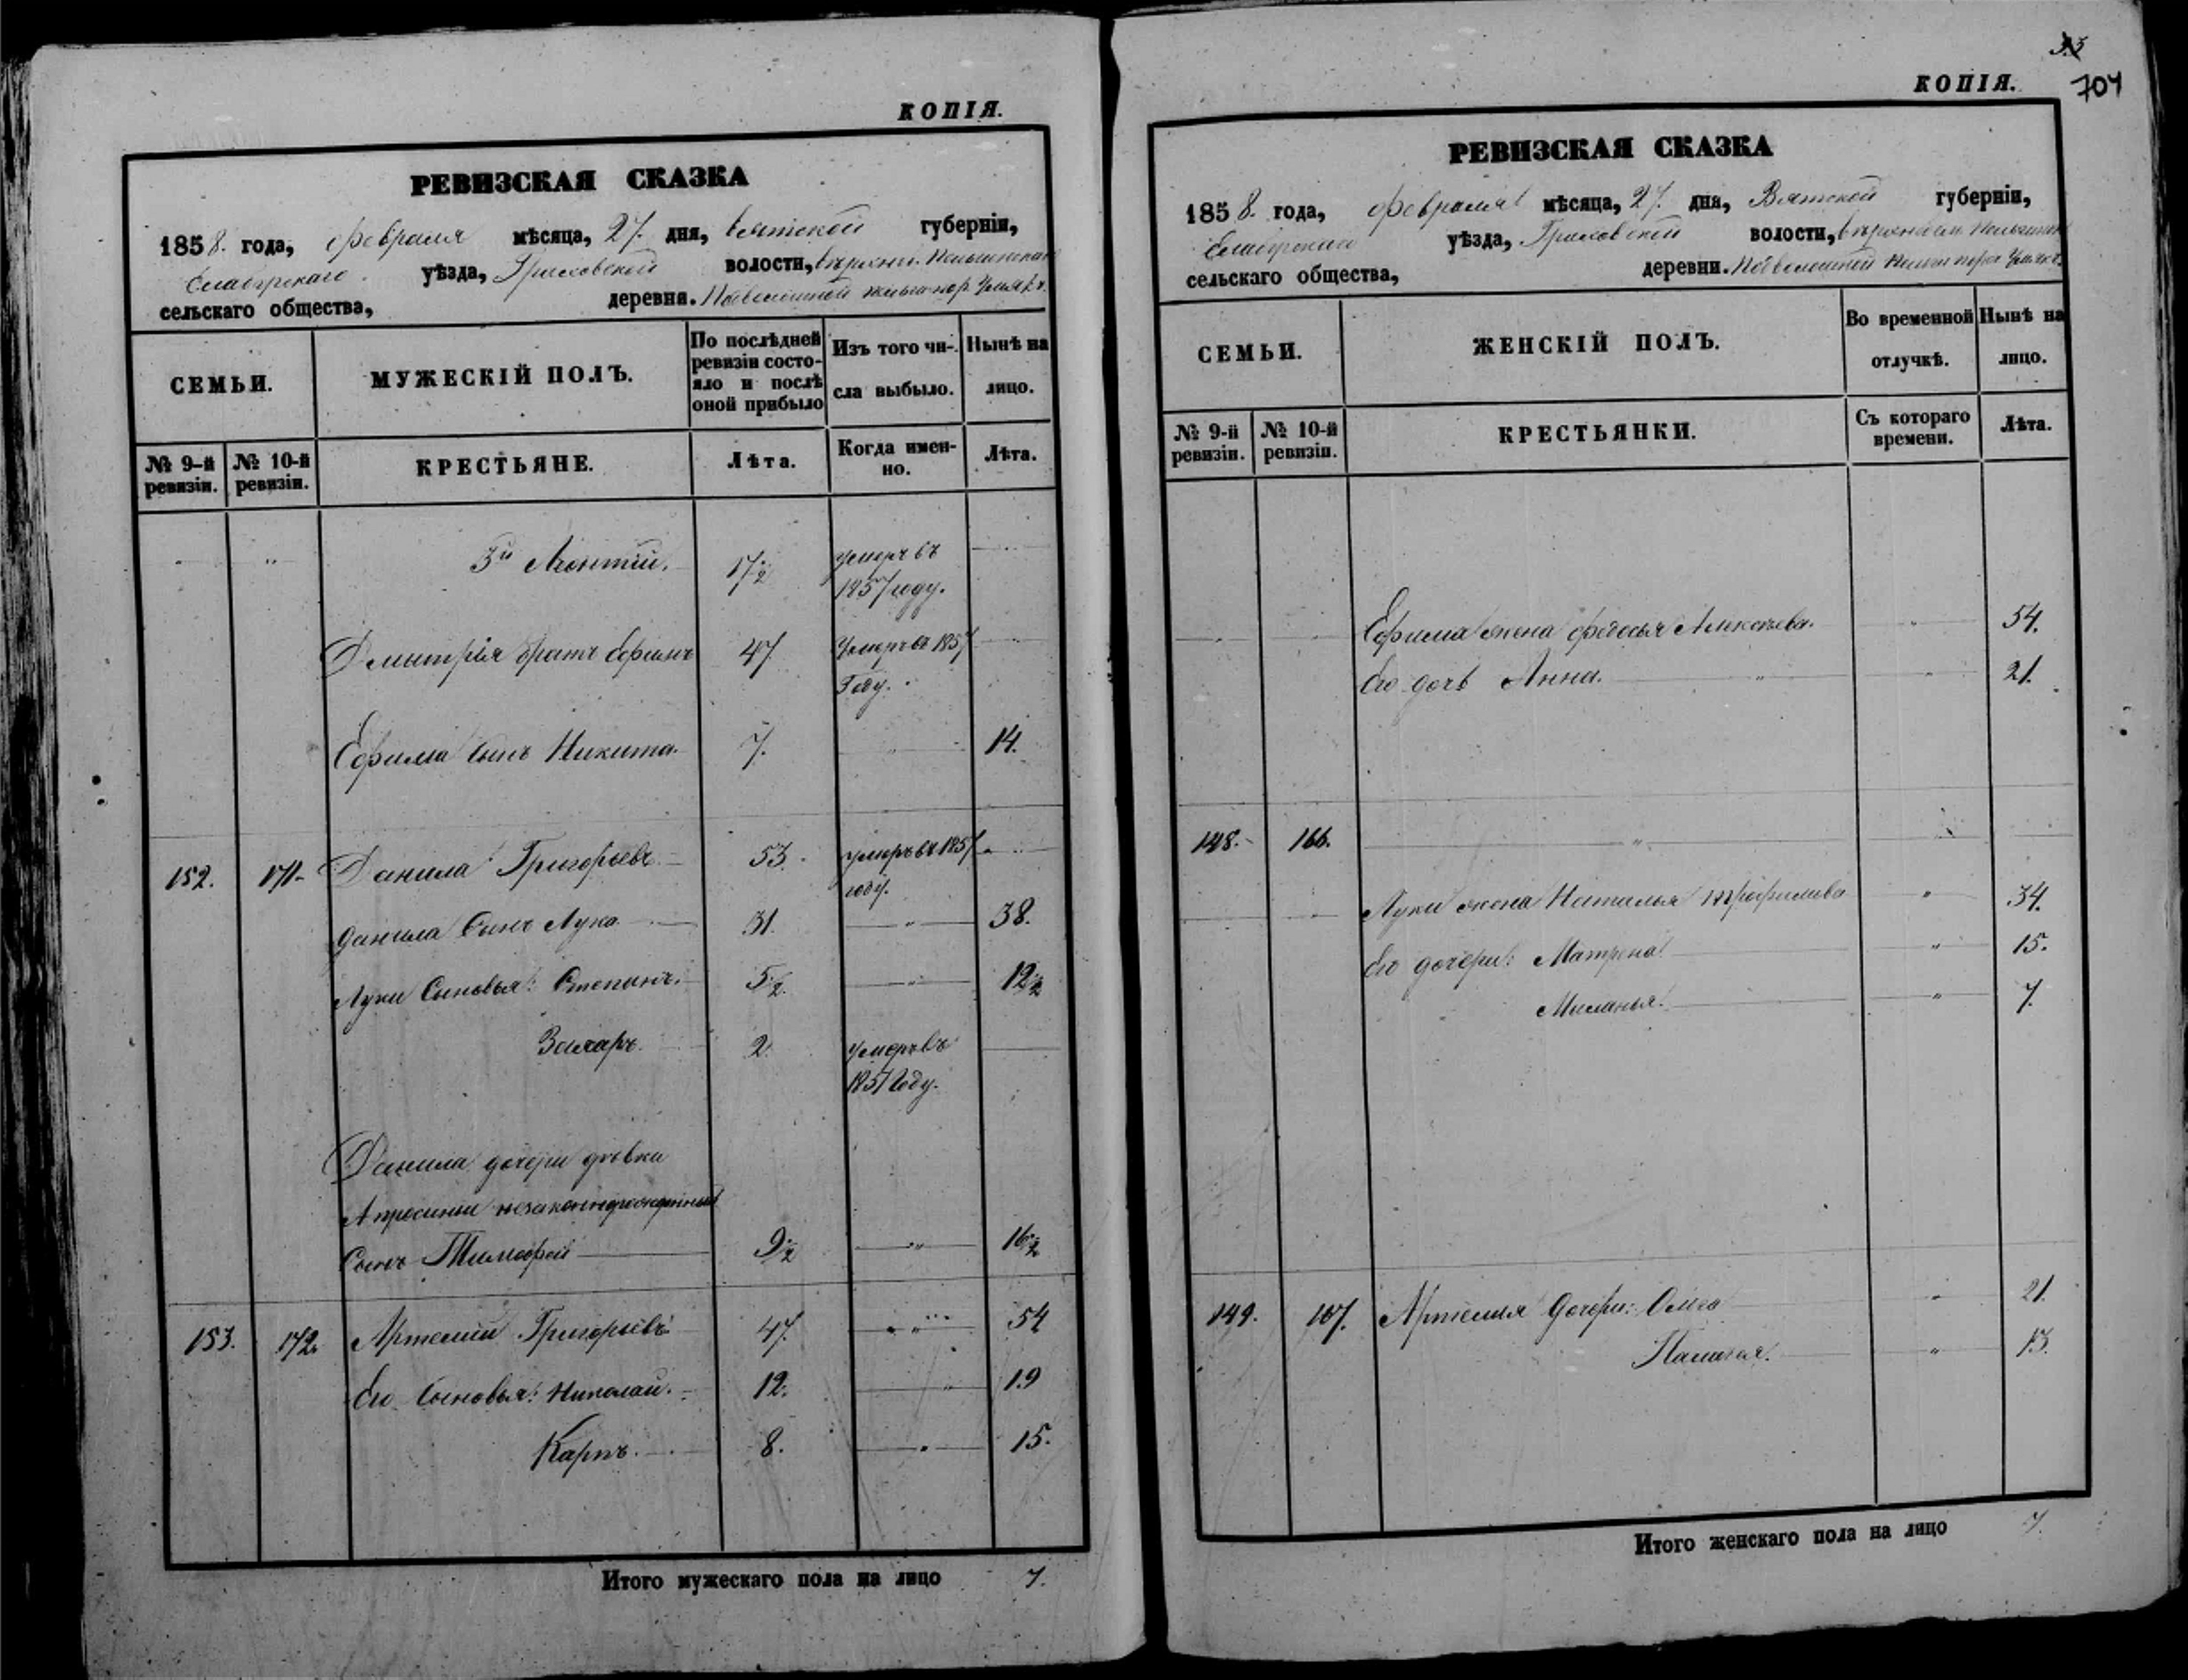 КОПІЯ.
РЕВИЗСКАЯ СКАЗКА
1858. года, Февраля мѣсяца, 27. дня, Вятской губерніи,
Елабугскаго уѣзда, волости,
сельскаго общества, деревни.
СЕМЬИ.
МУЖЕСКІЙ ПОЛЪ.
По послѣдней
ревизіи состо-
яло и послѣ
оной прибыло
Изъ того чи-
сла выбыло.
Нынѣ на
лицо.
№ 9-й
ревизіи.
№ 10-й
ревизіи.
КРЕСТЬЯНЕ.
Лѣта.
Когда имен-
но.
Лѣта.
3й Леонтій. 17 1/2 умеръ въ
1857 году.
Дмитрія братъ Ефимъ 47 Умеръ въ 1857
Году.
Ефима Сынъ Никита. 7. 14.
152. 171. Данила Григорьевъ 53. умеръ въ 1857
году.
Данила Сынъ Лука 31. 38.
Луки Сыновья: Степанъ. 5 1/2. 12 1/2
Захаръ. 2. умеръ въ
1851 Году.
Данила дочери дѣвки
Апросиньи незаконнорожденный
Сынъ Тимофей 9 1/2 16 1/2
153. 172. Артемій Григорьевъ 47. 54
Его Сыновья: Николай. 12. 19
Карпъ. 8. 15.
Итого мужескаго пола на лицо 7.
33
704
КОПІЯ.
РЕВИЗСКАЯ СКАЗКА
1858. года, Февраля мѣсяца, 27. дня, Вятской губерніи,
Елабугскаго уѣзда, волости,
сельскаго общества, деревни.
СЕМЬИ.
ЖЕНСКІЙ ПОЛЪ.
Во временной
отлучкѣ.
Нынѣ на
лицо.
№ 9-й
ревизіи.
№ 10-й
ревизіи.
КРЕСТЬЯНКИ.
Съ котораго
времени.
Лѣта.
Ефима жена Федосья Алексѣева. 54.
Его дочь Анна. 21.
148. 166.
Луки жена Наталья Трофимова 34.
Его дочери: Матрена. 15.
Миланья. 7.
149. 167. Артемія Дочери: 21.
Палагея. 13.
Итого женскаго пола на лицо 7.